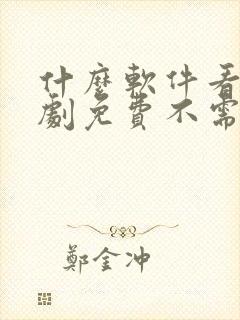 什麼軟件看
劇免費不需
鄭金沖